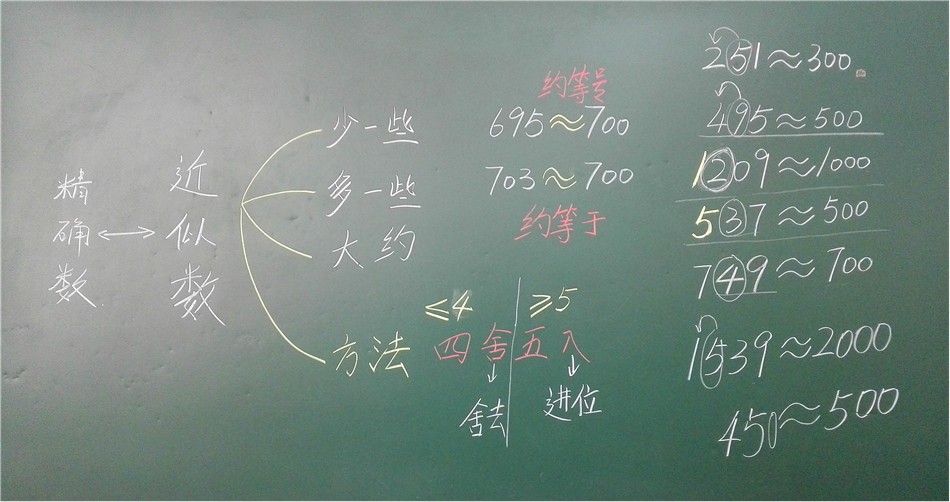 精确数
↔
近似数
少一些
多一些
大约
方法
约等号
695≈700
703≈700
约等于
≤4
≥5
四舍五入
↓
↓
舍去
进位
251≈300
495≈500
1209≈1000
537≈500
749≈700
1539≈2000
450≈500